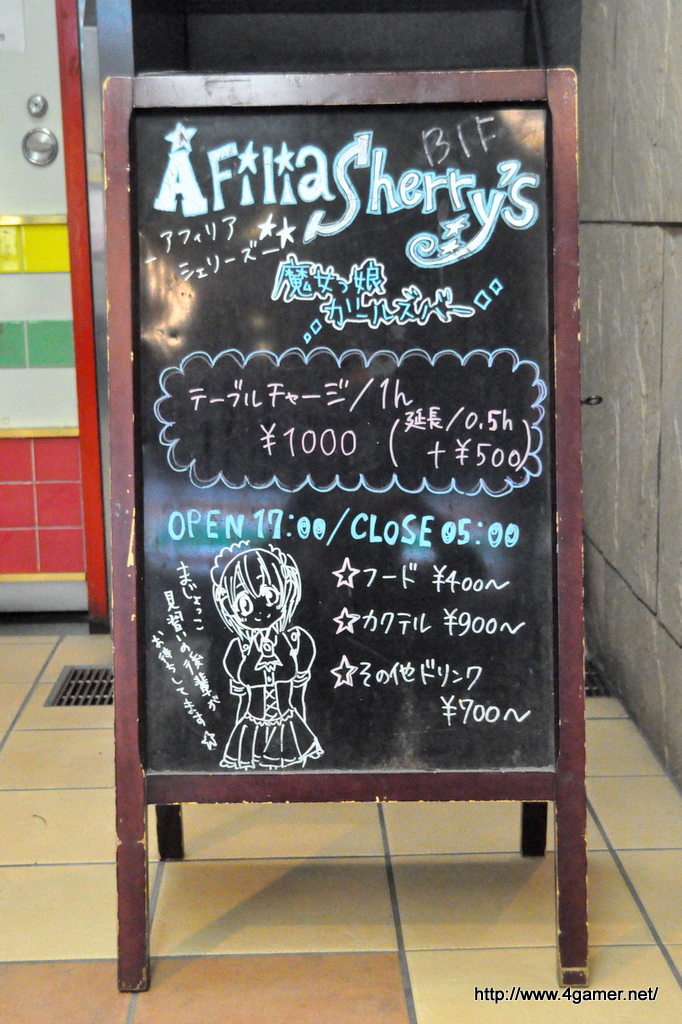 Afilia Sherry's B1F
アフィリア
シェリーズ
魔女っ娘
ガールズバー
テーブルチャージ/1h
¥1000
(延長/0.5h
+¥500)
OPEN 17:00/CLOSE 05:00
☆フード ¥400〜
☆カクテル ¥900〜
☆その他ドリンク
¥700〜
まじょっこ
見習いの後輩が
お待ちしてます☆
http://www.4gamer.net/